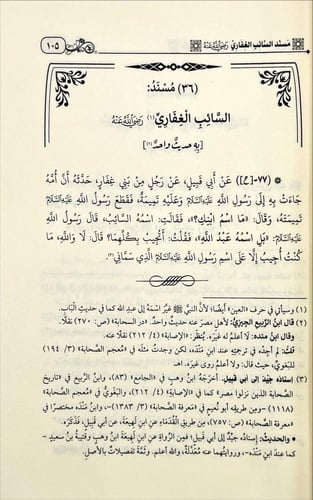 مسند السائب الغفاري رَضِيَ اللَّهُ عَنْهُ
١٠٥
(٣٦) مُسْنَدُ:
السَّائِبِ الْغِفَارِيِّ (١) رَضِيَ اللَّهُ عَنْهُ
[بِهِ حديثٌ واحدٌ (٢)]
* (٧٧-[ع]) عَنْ أَبِي قَبِيلٍ، عَنْ رَجُلٍ مِنْ بَنِي غِفَارٍ، حَدَّثَهُ أَنَّ أُمَّهُ
جَاءَتْ بِهِ إِلَى رَسُولِ اللَّهِ عَلَيْهِ السَّلَامُ وَعَلَيْهِ تَمِيمَةٌ، فَقَطَعَ رَسُولُ اللَّهِ عَلَيْهِ السَّلَامُ
تَمِيمَتَهُ، وَقَالَ: «مَا اسْمُ ابْنِكِ؟» فَقَالَتِ: اسْمُهُ السَّائِبُ، قَالَ رَسُولُ اللَّهِ
عَلَيْهِ السَّلَامُ: «بَلِ اسْمُهُ عَبْدُ اللَّهِ»، فَقُلْتُ: أَتُجِيبُ بِكِلَيْهِمَا؟ قَالَ: لَا وَاللَّهِ، مَا
كُنْتُ أُجِيبُ إِلَّا عَلَى اسْمِ رَسُولِ اللَّهِ عَلَيْهِ السَّلَامُ الَّذِي سَمَّانِي (٣).
(١) وسيأتي في حرف «العين» أيضًا؛ لأنَّ النبيَّ ﷺ غيَّر اسمَهُ إلى عبد الله كما في حديثِ الْبَاب.
(٢) قال ابنُ الرَّبيع الجِيزيُّ: لأهلِ مصرَ عنه حديثٌ واحدٌ. «در السحابة» (ص: ٢٧٠) نقلًا.
وقال ابنُ منده: لا أعلمُ له غيرَه. يُنظَر: «الإصابة» (٤/ ٢١٢) نقلًا عنه.
قلتُ: لم أجِدْه في ترجمتِه عند ابنِ مَنْدَه، لكن وجدتُ مثلَه في «معجم الصَّحابة» (٣/ ١٩٤)
للبَغَويِّ، حيثُ قال: ولا أعلمُ روى غيرَ، هـ.
(٣) إسنادُه جيِّدٌ إلى أبي قَبيل. أخرَجَهُ ابنُ وهبٍ في «الجامع» (٨٣)، وابنُ الرَّبيع في «تاريخ
الصَّحابة الذين نزلوا مصرَ» كما في «الإصابة» (٤/ ٢١٢)، والبَغَويُّ في «معجم الصَّحابة»
(١١١٨) -ومن طريقِه أبو نُعيم في «معرفة الصَّحابة» (٣/ ١٣٨٣)-، وابنُ مَنْدَه مختصرًا في
«معرفة الصَّحابة» (ص: ٧٥٧)، من طريقِ الْمِقْدَامِ عن ابنِ لَهِيعَةَ، عن أبي قَبيلٍ، فذَكَرَه.
* والحديثُ: إسنادُه جيِّدٌ إلى أبي قَبيل؛ فمِن الرُّواةِ عن ابنِ لَهِيعَةَ ابنُ وهبٍ وقُتيبةُ بنُ سعيدٍ -
كما عندَ ابنِ مَنْدَه-، وروايتُهما عنه مُعْتَدَلَةٌ، والله أعلم. وثَمَّةَ تفصيلاتٌ بالأصلِ.